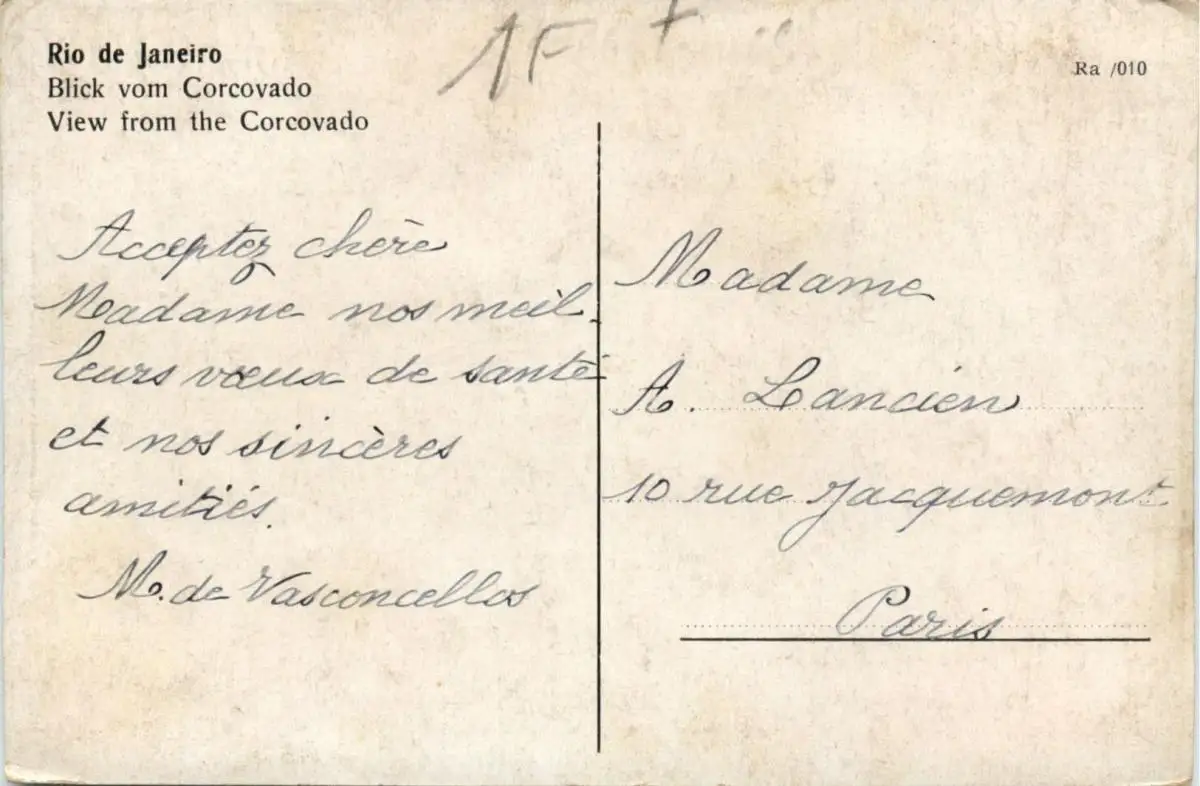 Rio de Janeiro
Blick vom Corcovado
View from the Corcovado
1F +
Ra /010
Acceptez chère
Madame nos meil-
leurs vœux de santé
et nos sincères
amitiés.
M. de Vasconcellos
Madame
A. Lancien
10 rue Jacquemont
Paris